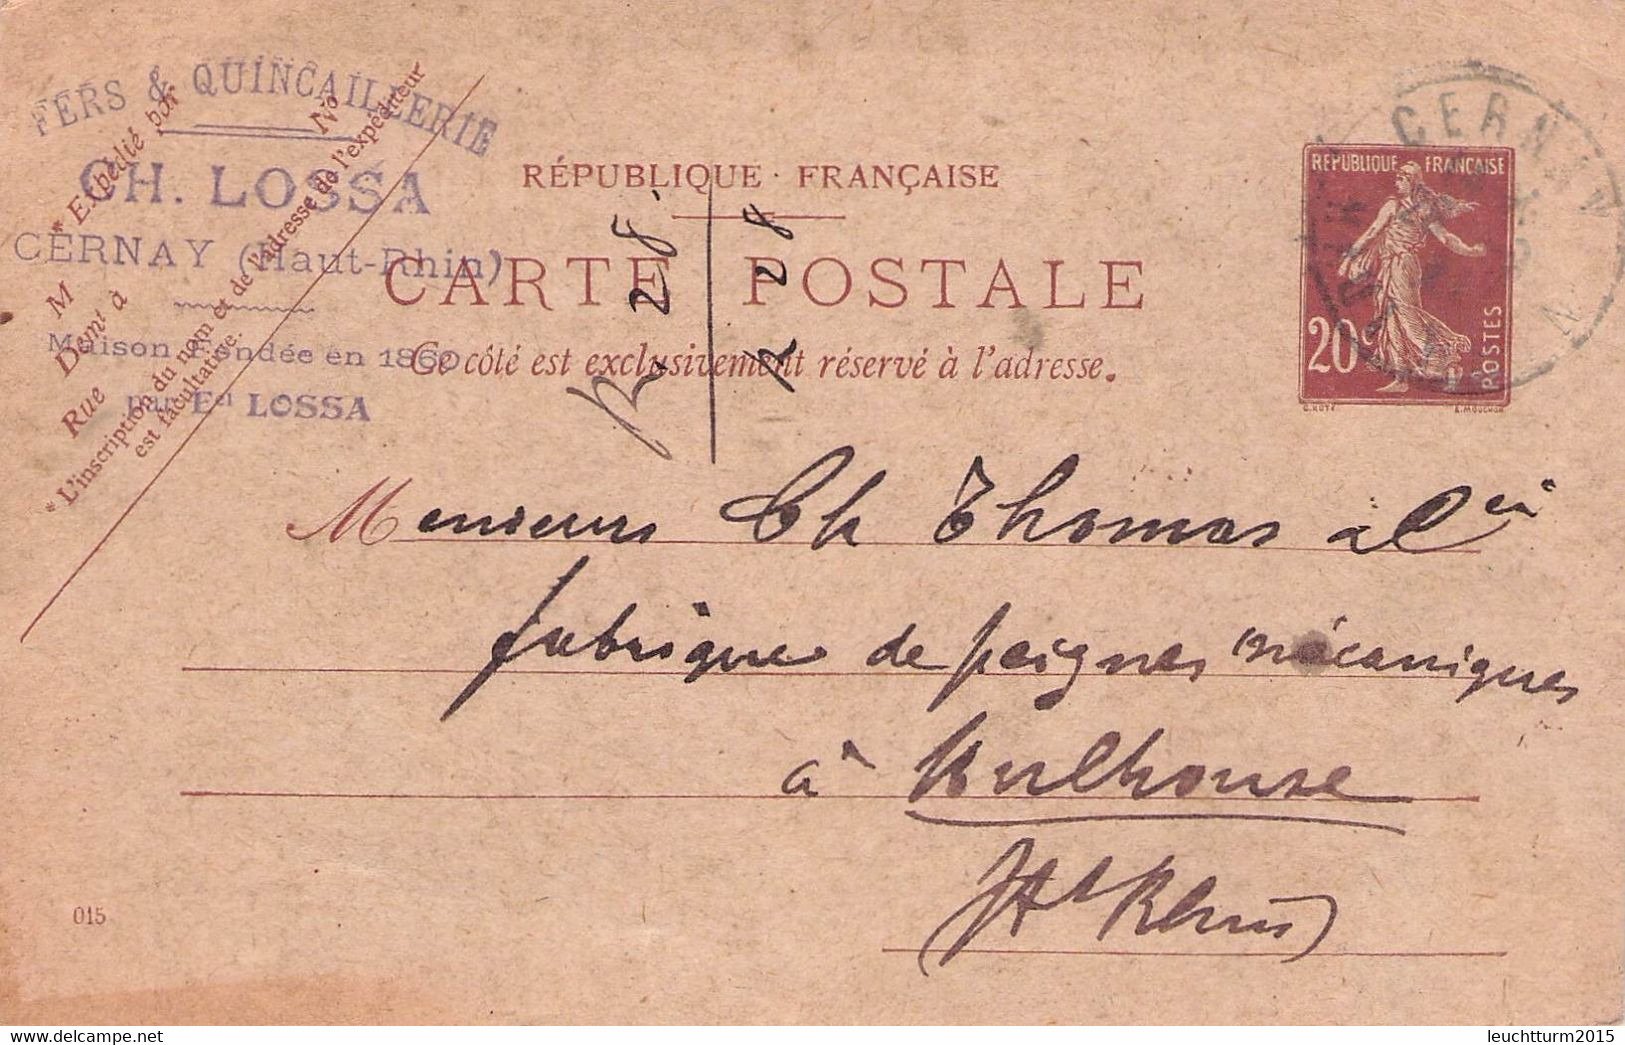 FERS & QUINCAILLERIE
CH. LOSSA
CERNAY (Haut-Rhin)
Maison Fondée en 1860
par Ed LOSSA
* Expédié par
M No
Demt à
Rue
* L'inscription du nom et de l'adresse de l'expéditeur
est facultative.
RÉPUBLIQUE FRANÇAISE
CARTE POSTALE
Ce côté est exclusivement réservé à l'adresse.
R. 28.
R 28
CERNAY
RHIN
RÉPUBLIQUE FRANÇAISE
20c
POSTES
O. ROTY E. MOUCHON
Messieurs Ch Thomas & Cie
fabriques de peignes mécaniques
à Mulhouse
(Ht Rhin)
015
leuchtturm2015